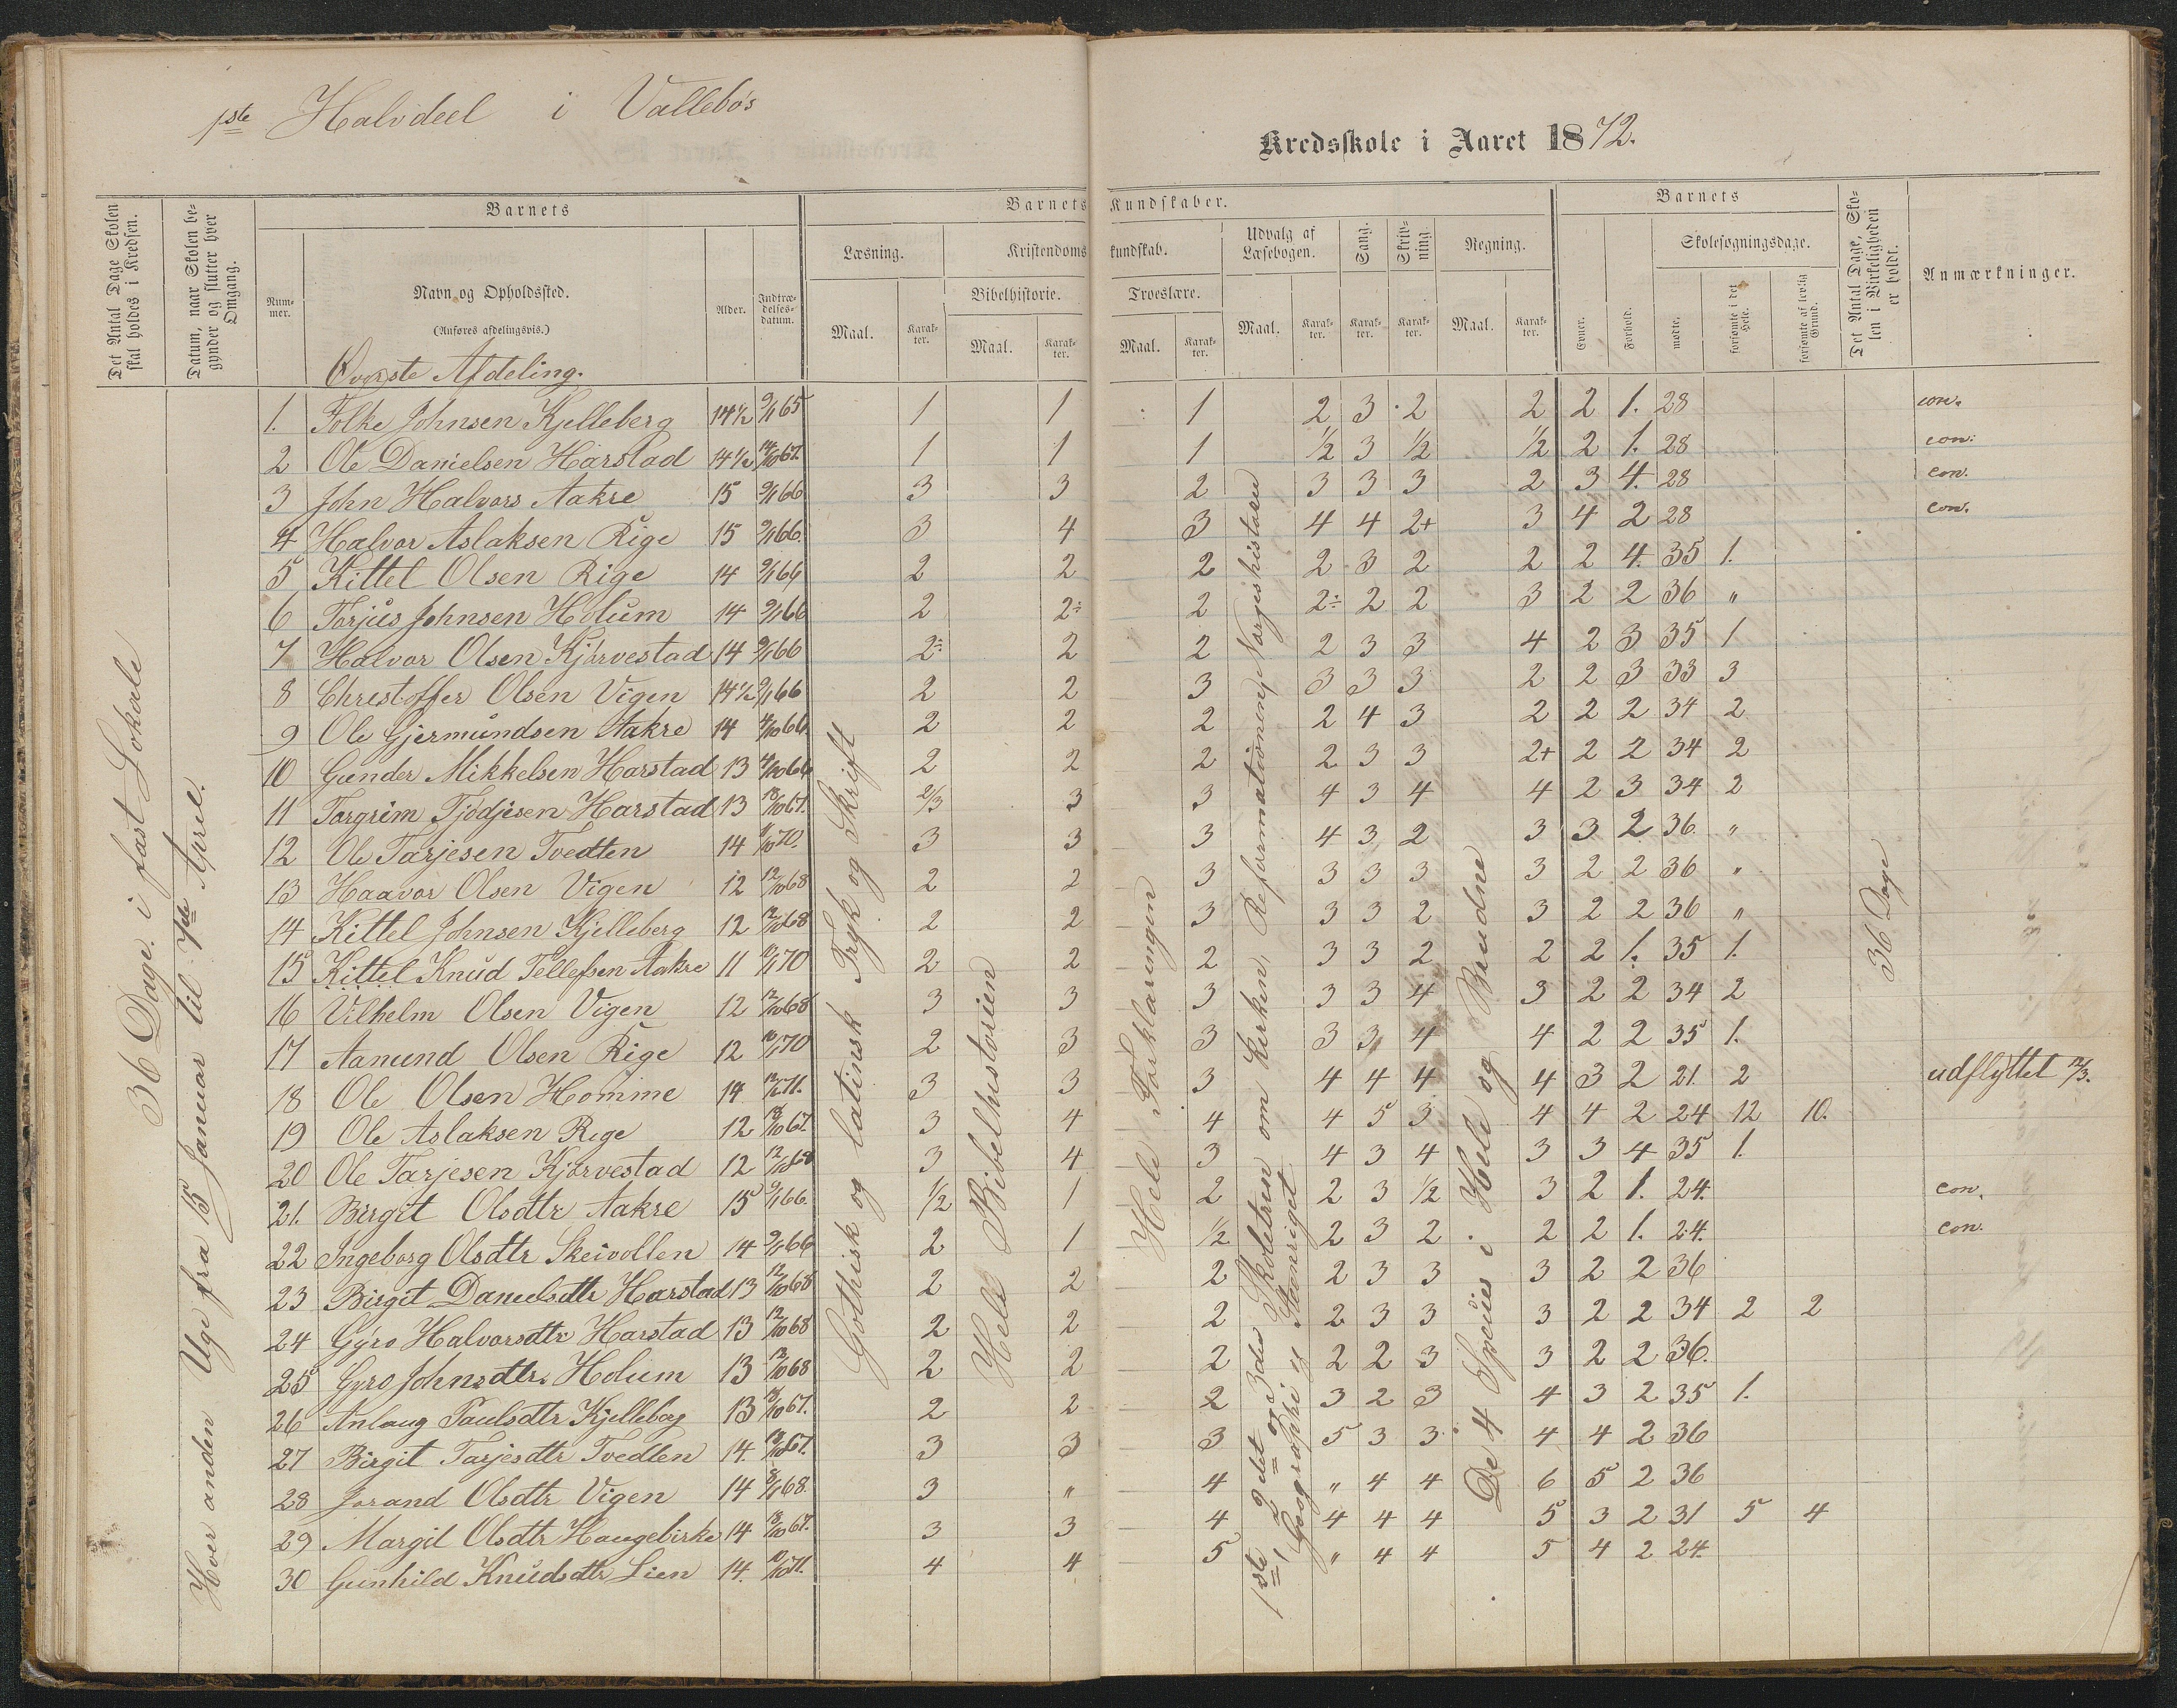 1ste Halvdeel i Vallebøs
Kredsskole i Aaret 1872.
Det Antal Dage Skolen skal holdes i Kredsen.
Datum, naar Skolen begynder og slutter hver Omgang.
Barnets
Nummer.
Navn og Opholdssted.
(Anføres afdelingsvis.)
Alder.
Indtrædelsesdatum.
Barnets Kundskaber.
Læsning.
Maal.
Karakter.
Kristendomskundskab.
Bibelhistorie.
Maal.
Karakter.
Troeslære.
Maal.
Karakter.
Udvalg af Læsebogen.
Maal.
Karakter.
Sang.
Karakter.
Skrivning.
Karakter.
Regning.
Maal.
Karakter.
Barnets
Evner.
Forhold.
Skolesøgningsdage.
mødte.
forsømte i det Hele.
forsømte af lovlig Grund.
Det Antal Dage, Skolen i Virkeligheden er holdt.
Anmærkninger.
Øverste Afdeling.
36 Dage i fast Lokale
Hver anden Uge fra 15 Januar til 7de April.
Gothisk og latinsk Tryk og Skrift
Hele Bibelhistorien
Hele Forklaringen
1ste, 2det og 3die Skoletrin om Kirken, Reformationen, Norgeshistorien
Geographi og Stenriget
De 4 Species i Hele og Benævnte
36 Dage
1. Folke Johnsen Kjelleberg 14½ 9/1 65 1 1 1 2 3 2 2 2 1. 28 con.
2 Ole Danielsen Harstad 14½ 14/10 67. 1 1 1 ½ 3 ½ ½ 2 1. 28 con.
3 John Halvors Aakre 15 9/1 66 3 3 2 3 3 3 2 3 4. 28 con.
4 Halvor Aslaksen Rige 15 9/1 66. 3 4 3 4 4 2+ 3 4 2 28 con.
5 Kittel Olsen Rige 14 9/1 66 2 2 2 2 3 2 2 2 4. 35 1.
6 Torjus Johnsen Holum 14 9/1 66 2 2÷ 2 2÷ 2 2 3 2 2 36 "
7 Halvor Olsen Kjørvestad 14 9/1 66 2÷ 2 2 2 3 3 4 2 3 35 1
8 Chrestoffer Olsen Vigen 14½ 9/1 66 2 2 3 3 3 3 2 2 3 33 3
9 Ole Gjermundsen Aakre 14 4/10 66. 2 2 2 2 4 3 2 2 2 34 2
10 Gunder Mikkelsen Harstad 13 4/10 66 2 2 2 2 3 3 2+ 2 2 34 2
11 Torgrim Tjødjesen Harstad 13 18/10 67. 2/3 3 3 4 3 4 4 2 3 34 2
12 Ole Tarjesen Tvedten 14 70. 3 3 3 4 3 2 3 3 2 36. "
13 Haavor Olsen Vigen 12 12/10 68 2 2 3 3 3 3 3 2 2 36 "
14 Kittel Johnsen Kjelleberg 12 12/10 68 2 2 3 3 3 2 3 2 2 36 "
15 Kittel Knud Tellefsen Aakre 11 10/1 70 2 2 2 3 3 2 2 2 1. 35 1.
16 Vilhelm Olsen Vigen 12 12/10 68 3 3 3 3 3 4 3 2 2 34 2
17 Aanund Olsen Rige 12 10/1 70 2 3 3 3 3 4 4 2 2 35 1.
18 Ole Olsen Homme 14 71. 3 3 3 4 4 4 4 3 2 21. 2 udflyttet 12/3.
19 Ole Aslaksen Rige 12 18/10 67. 3 4 4 4 5 3 4 4 2 24 12 10.
20 Ole Tarjesen Kjørvestad 12 12/10 68 3 4 3 4 3 4 3 3 4 35 1.
21. Birgit Olsdtr Aakre 15 9/1 66. ½ 1 2 2 3 ½ 3 2 1. 24. con.
22 Ingeborg Olsdtr Skeivollen 14 9/1 66 2 1 ½ 2 3 2 2 2 1. 24. con.
23 Birgit Danielsdtr Harstad 13 12/10 68 2 2 2 2 3 3 3 2 2 36
24 Gyro Halvorsdtr Harstad 13 12/10 68 2 2 2 2 3 3 3 2 2 34 2 2
25 Gyro Johnsdtr. Holum 13 12/10 68 2 2 2 2 2 3 3 2 2 36.
26 Anlaug Paulsdtr Kjelleberg 13 18/10 67. 2 2 2 3 2 3 4 3 2 35 1.
27 Birgit Tarjesdtr Tvedten 14. 18/10 67. 3 3 3 5 3 3 4 4 2 36
28 Jorand Olsdtr Vigen 14 8/1 68. 3 " 4 " 4 4 6 5 2 36
29 Margit Olsdtr Haugebirke 14 18/10 67. 3 3 4 4 4 4 5 3 2 31 5 4
30 Gunhild Knudsdtr Lien 14. 10/10 71. 4 4 5 " 4 4 5 4 2 24.